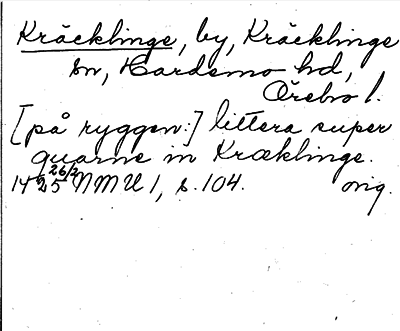 Kräcklinge, by, Kräcklinge
sn, Hardemo hd,
Örebro l.
[på ryggen:] littera super
quarne in Kræklinge.
1425 26/2 NMU 1, s. 104. orig.